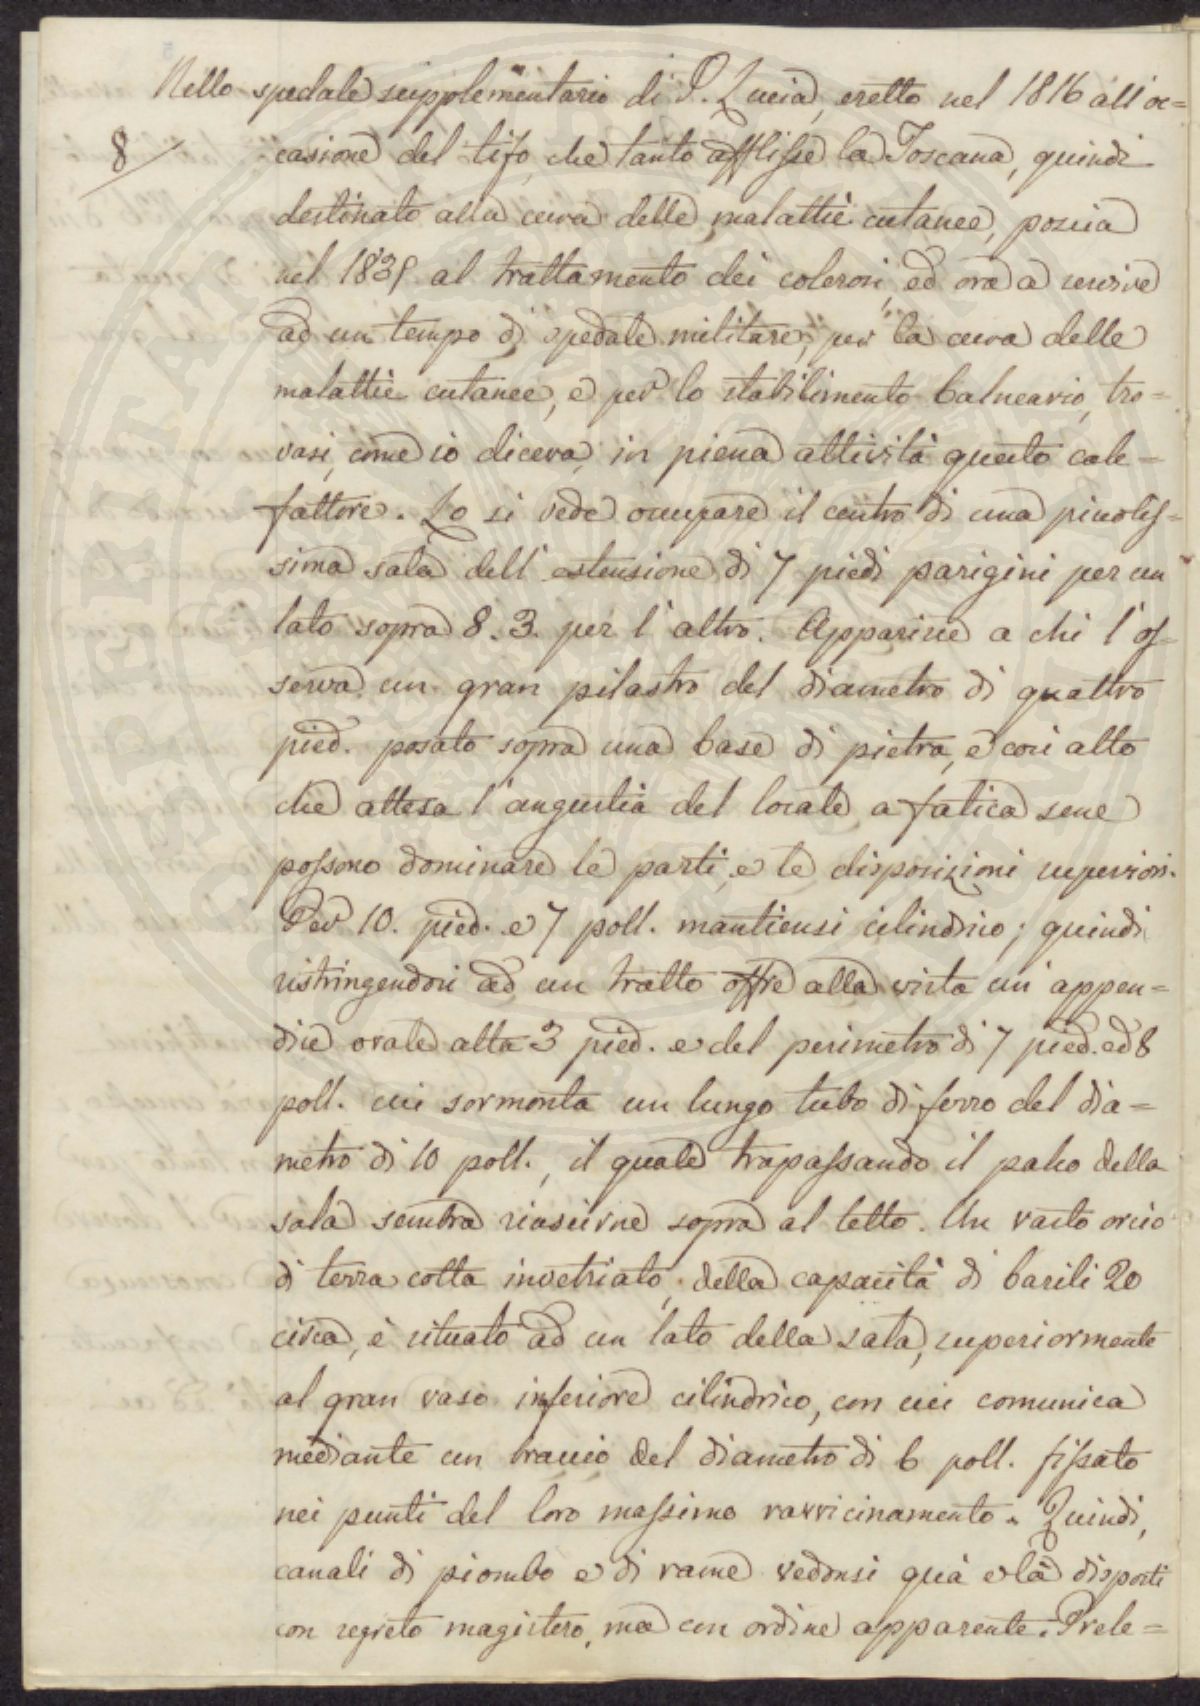 Nello spedale supplementario di S. Lucia, eretto nel 1816 all'oc=
8
casione del tifo, che tanto afflisse la Toscana, quindi
destinato alla cura delle malattie cutanee, poscia
nel 1835 al trattamento dei colerosi, ed ora a servire
ad un tempo di spedale militare, per la cura delle
malattie cutanee, e per lo stabilimento balneario, tro=
vasi, come io diceva, in piena attività questo cale=
fattore. Lo si vede occupare il centro di una piccolis=
sima sala dell'estensione di 7 piedi parigini per un
lato sopra 8. 3. per l'altro. Apparisce a chi l'os=
serva un gran pilastro del diametro di quattro
pied. posato sopra una base di pietra, e così alto
che attesa l'angustia del locale a fatica sene
possono dominare le parti, e le disposizioni superiori.
Per 10. pied. e 7 poll. mantiensi cilindrico; quindi
ristringendosi ad un tratto offre alla vista un'appen=
dice ovale alta 3 pied. e del perimetro di 7 pied. ed 8
poll. cui sormonta un lungo tubo di ferro del dia=
metro di 10 poll., il quale trapassando il palco della
sala sembra riascirne sopra al tetto. Un vasto orcio
di terra cotta invetriato, della capacità di barili 20
circa, è situato ad un lato della sala, superiormente
al gran vaso inferiore cilindrico, con cui comunica
mediante un braccio del diametro di 6 poll. fissato
nei punti del loro massimo ravvicinamento. Quindi,
canali di piombo e di rame vedonsi quà e là disposti
con segreto magistero, ma con ordine apparente. Prele=